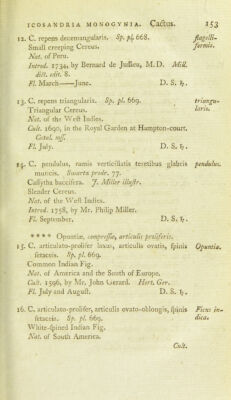 ICOSANDRIA MONOGYNIA. Cactus. 153
12. C. repens decemangularis. Sp. pl. 668. flagelli-
Small creeping Cereus. formis.
Nat. of Peru.
Introd. 1734, by Bernard de Jussieu, M.D. Mill.
dict. edit. 8.
Fl. March——June. D. S. ♄.
13. C. repens triangularis. Sp. pl. 669. triangu-
Triangular Cereus. laris.
Nat. of the West Indies.
Cult. 1690, in the Royal Garden at Hampton-court.
Catal. mss.
Fl. July. D. S. ♄.
14. C. pendulus, ramis verticillatis teretibus glabris pendulus.
muticis. Swartz prodr. 77.
Cassytha baccifera. J. Miller illustr.
Slender Cereus.
Nat. of the West Indies.
Introd. 1758, by Mr. Philip Miller.
Fl. September. D. S. ♄.
**** Opuntiæ, compressæ, articulis proliferis.
15. C. articulato-prolifer laxus, articulis ovatis, spinis Opuntia.
setaceis. Sp. pl. 669.
Common Indian Fig.
Nat. of America and the South of Europe.
Cult. 1596, by Mr. John Gerard. Hort. Ger.
Fl. July and August. D. S. ♄.
16. C. articulato-prolifer, articulis ovato-oblongis, spinis Ficus in-
setaceis. Sp. pl. 669. dica.
White-spined Indian Fig.
Nat. of South America.
Cult.